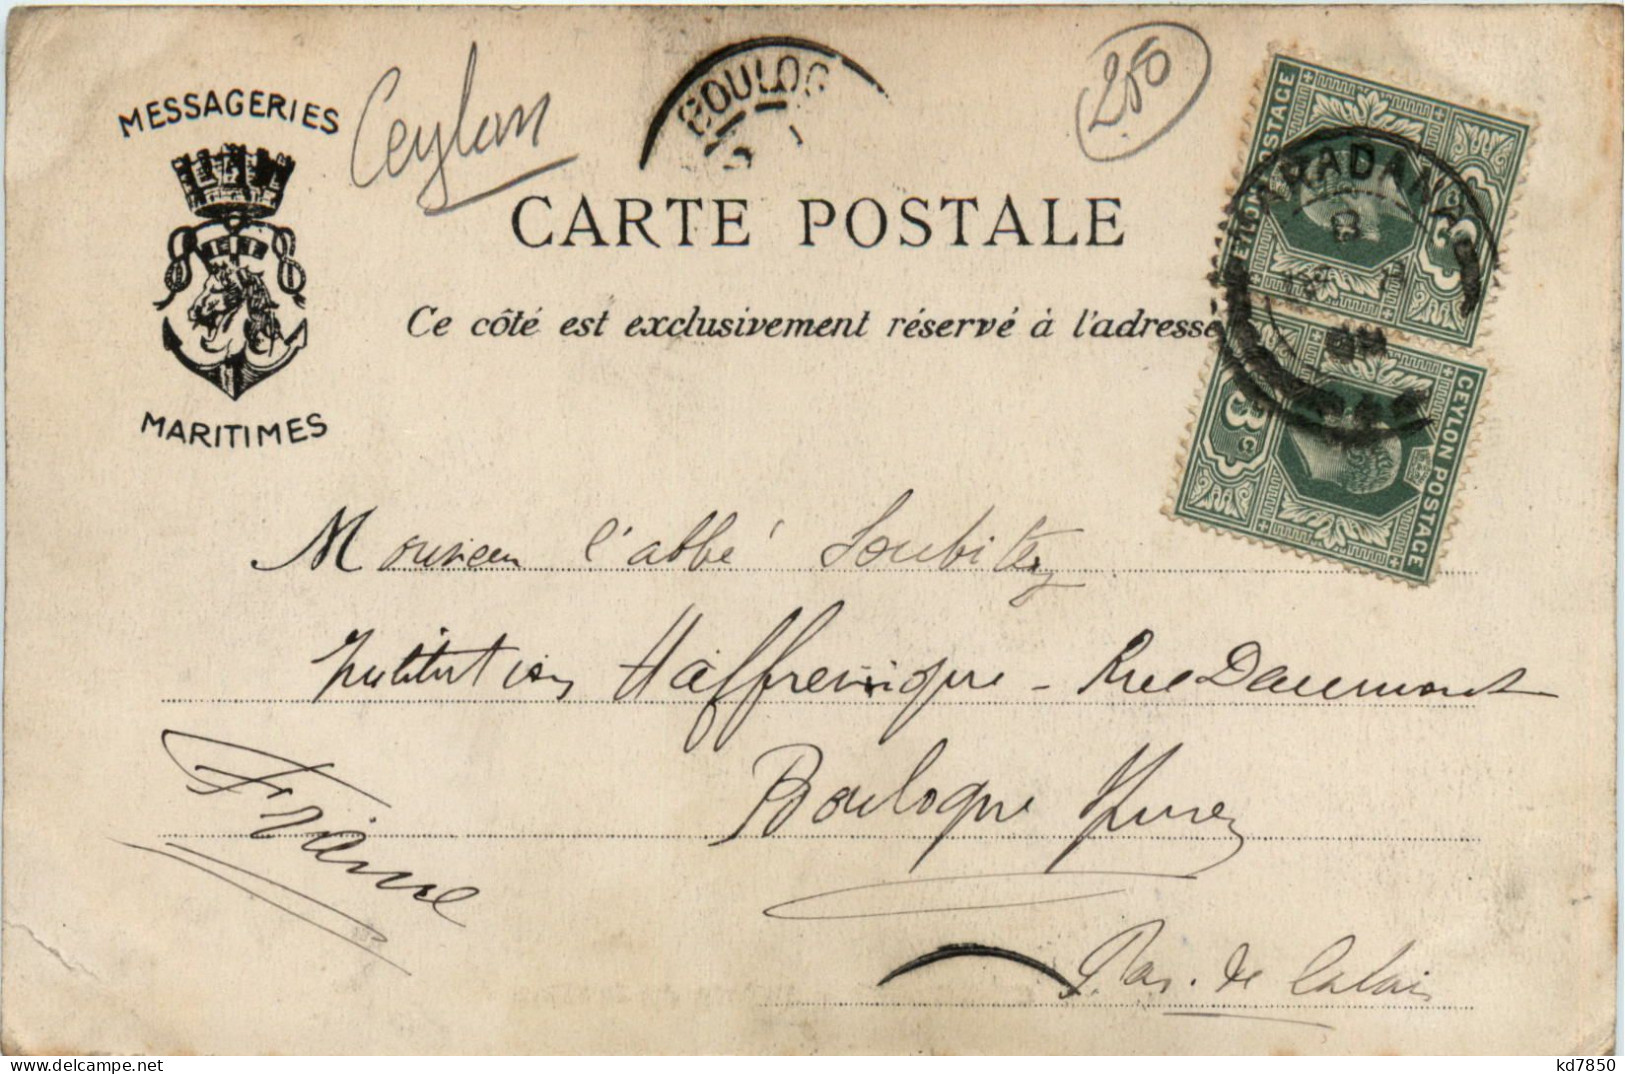 MESSAGERIES
MARITIMES
Ceylan
BOULOG
250
CARTE POSTALE
Ce côté est exclusivement réservé à l'adresse
CEYLON POSTAGE
3c
MARADANA
CEYLON POSTAGE
3c
l'abbé Soubitez
Institution Haffreingue - Rue Daumont
Boulogne s/mer
France
Pas. de Calais
kd7850